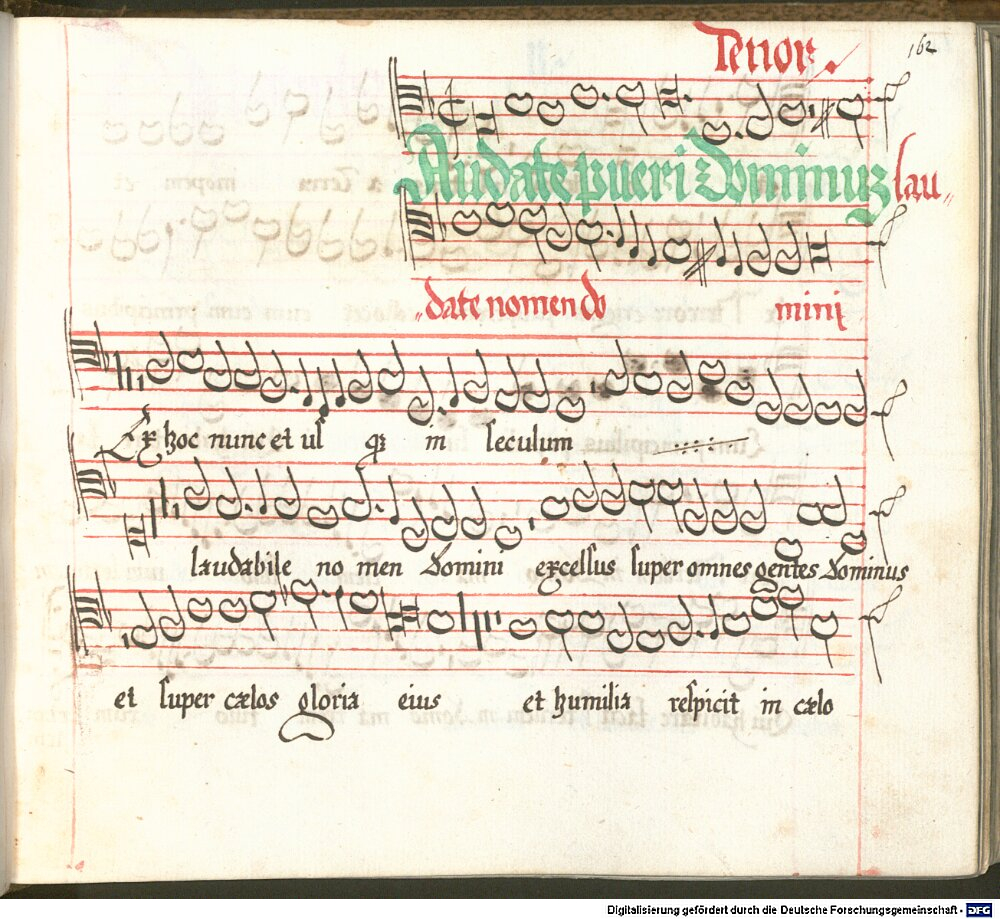 Tenor.
162
Audate pueri Dominuz lau„
„date nomen do mini
Ex hoc nunc et usq3 in seculum
laudabile no men Domini excelsus super omnes gentes Dominus
et super cælos gloria eius et humilia respicit in cælo
Digitalisierung gefördert durch die Deutsche Forschungsgemeinschaft - DFG